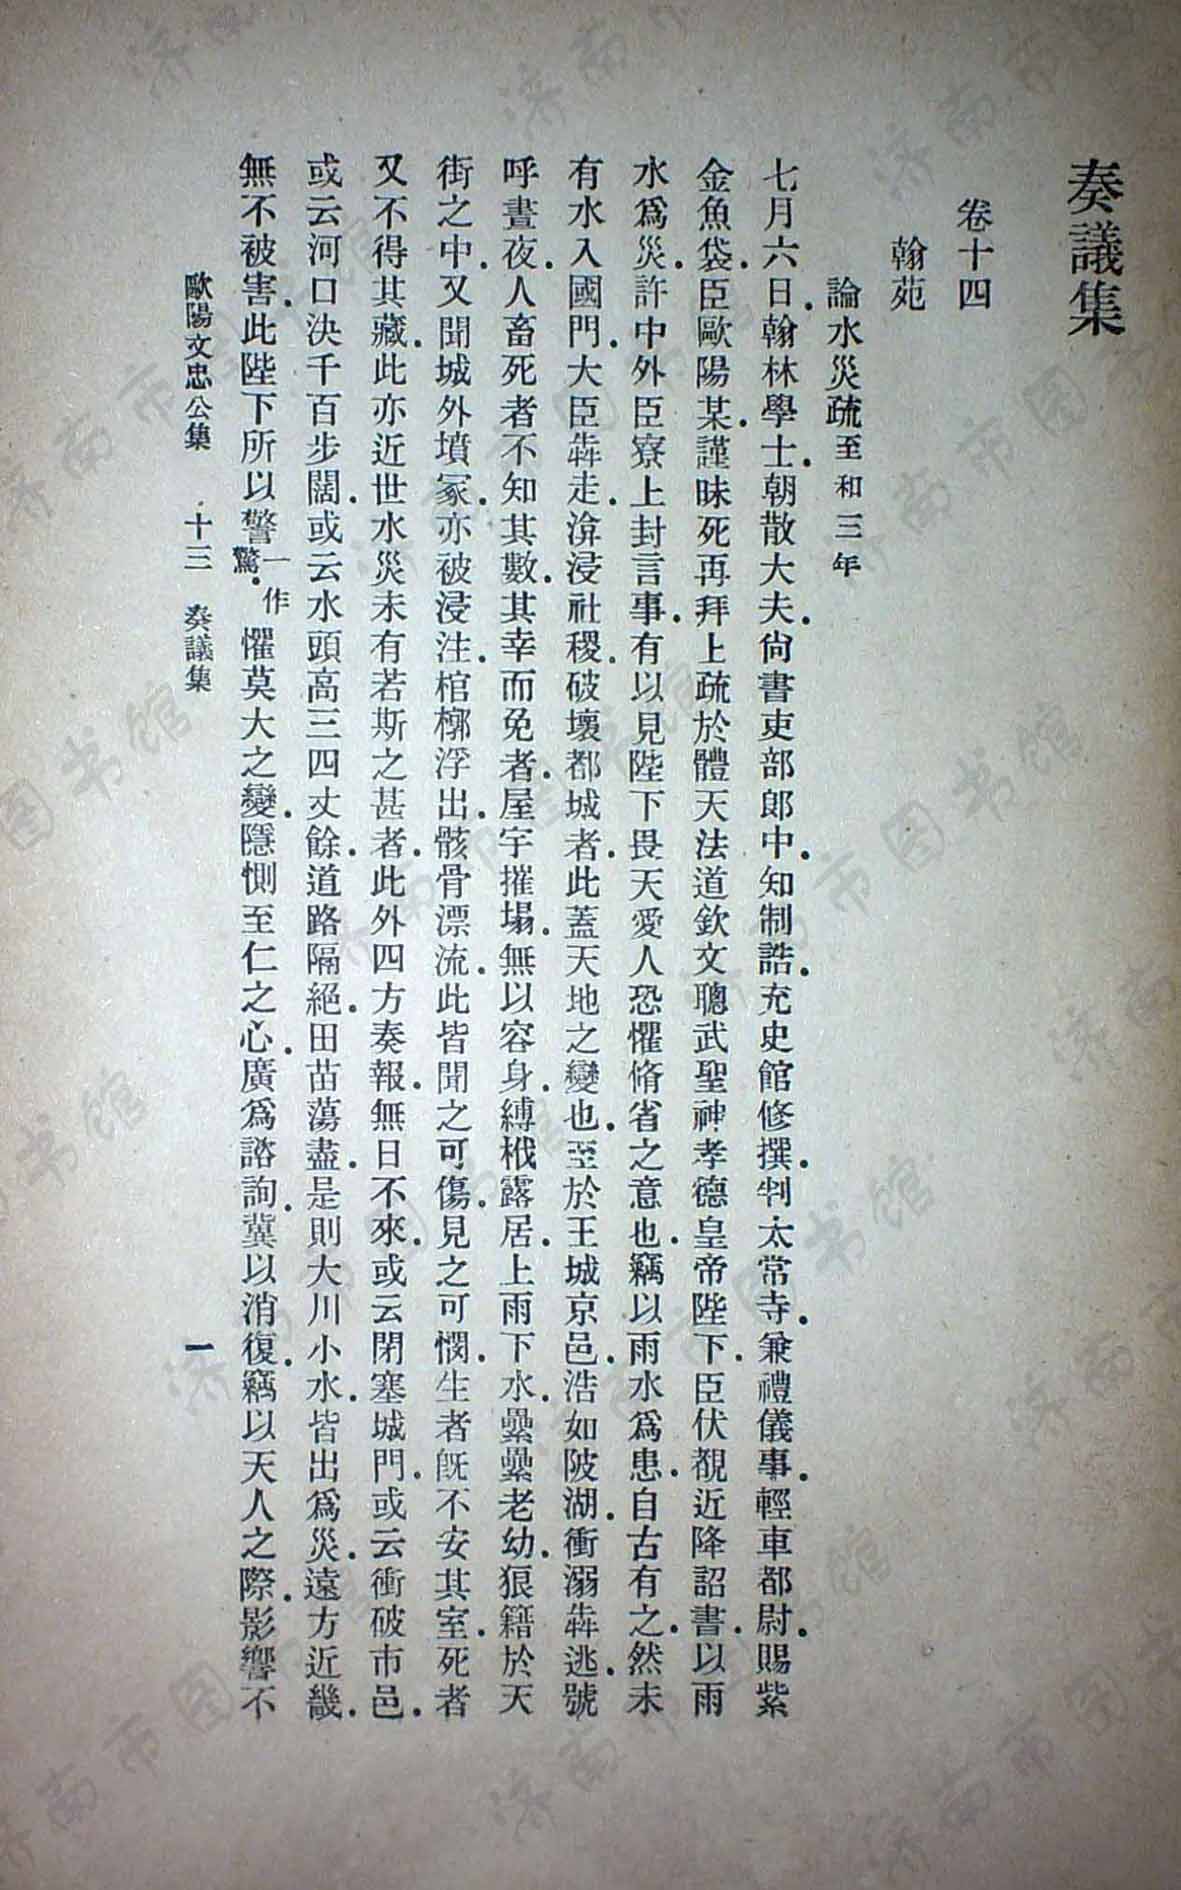 奏議集
卷十四
翰苑
論水災疏至和三年
七月六日.翰林學士.朝散大夫.尙書吏部郎中.知制誥.充史館修撰.判太常寺.兼禮儀事.輕車都尉.賜紫
金魚袋.臣歐陽某.謹昧死再拜上疏於體天法道欽文聰武聖神孝德皇帝陛下.臣伏覩近降詔書.以雨
水爲災.許中外臣寮上封言事.有以見陛下畏天愛人恐懼脩省之意也.竊以雨水爲患.自古有之.然未
有水入國門.大臣犇走.渰浸社稷.破壞都城者.此蓋天地之變也.至於王城京邑.浩如陂湖.衝溺犇逃.號
呼晝夜.人畜死者不知其數.其幸而免者.屋宇摧塌.無以容身.縛栰露居.上雨下水.纍纍老幼.狼籍於天
街之中.又聞城外墳冢.亦被浸注.棺槨浮出.骸骨漂流.此皆聞之可傷.見之可憫.生者旣不安其室.死者
又不得其藏.此亦近世水災未有若斯之甚者.此外四方奏報.無日不來.或云閉塞城門.或云衝破市邑.
或云河口決千百步闊.或云水頭高三四丈餘.道路隔絕.田苗蕩盡.是則大川小水.皆出爲災.遠方近畿.
無不被害.此陛下所以警一作驚.懼莫大之變.隱惻至仁之心.廣爲諮詢.冀以消復.竊以天人之際.影響不
歐陽文忠公集 十三 奏議集 一
济南市图书馆